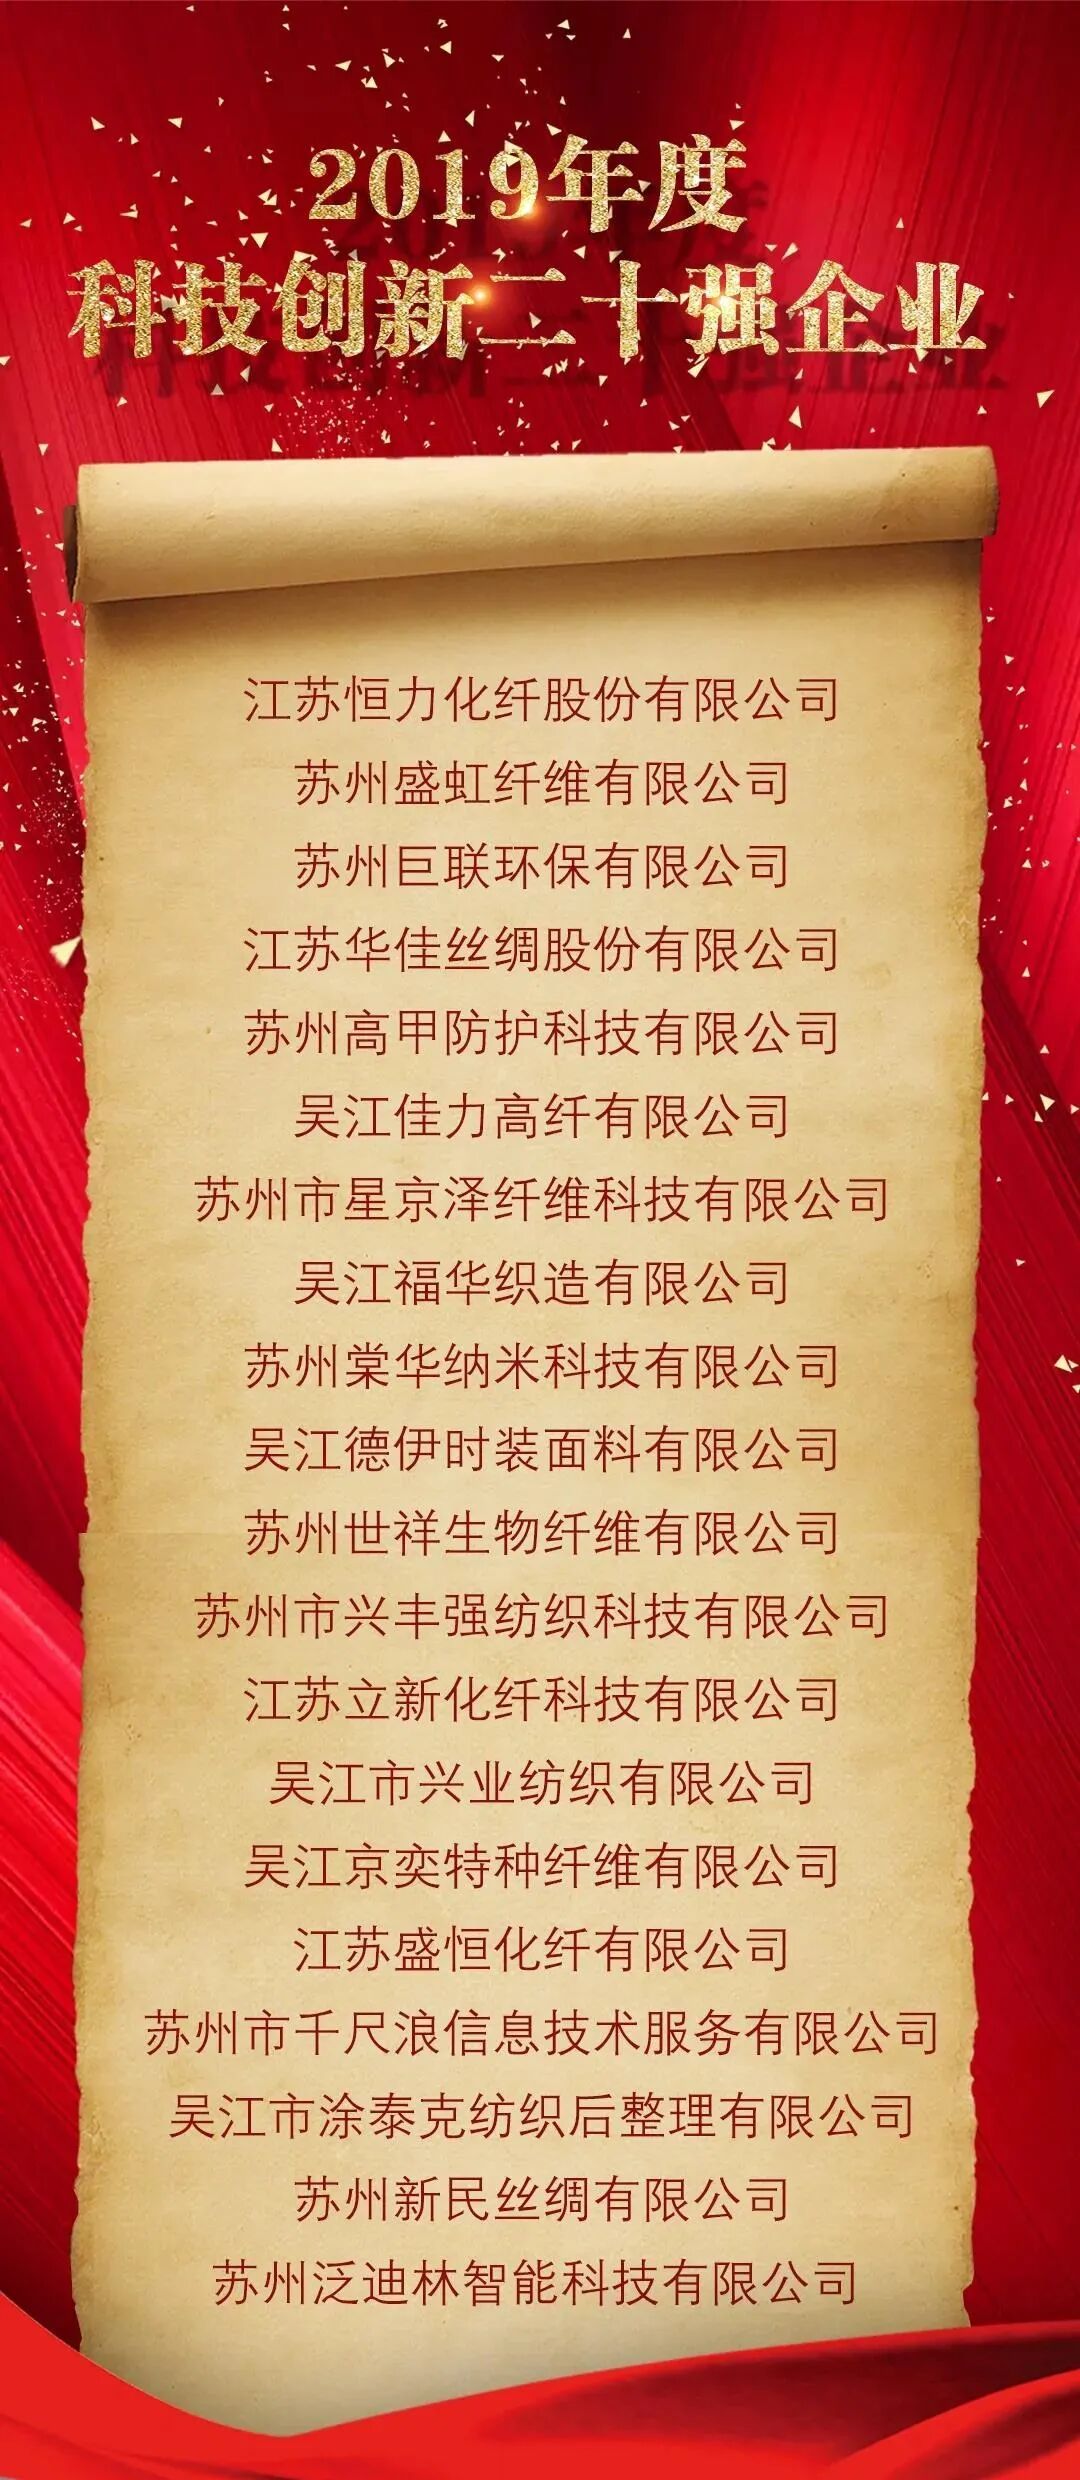 2019年度
科技创新二十强企业
江苏恒力化纤股份有限公司
苏州盛虹纤维有限公司
苏州巨联环保有限公司
江苏华佳丝绸股份有限公司
苏州高甲防护科技有限公司
吴江佳力高纤有限公司
苏州市星京泽纤维科技有限公司
吴江福华织造有限公司
苏州棠华纳米科技有限公司
吴江德伊时装面料有限公司
苏州世祥生物纤维有限公司
苏州市兴丰强纺织科技有限公司
江苏立新化纤科技有限公司
吴江市兴业纺织有限公司
吴江京奕特种纤维有限公司
江苏盛恒化纤有限公司
苏州市千尺浪信息技术服务有限公司
吴江市涂泰克纺织后整理有限公司
苏州新民丝绸有限公司
苏州泛迪林智能科技有限公司